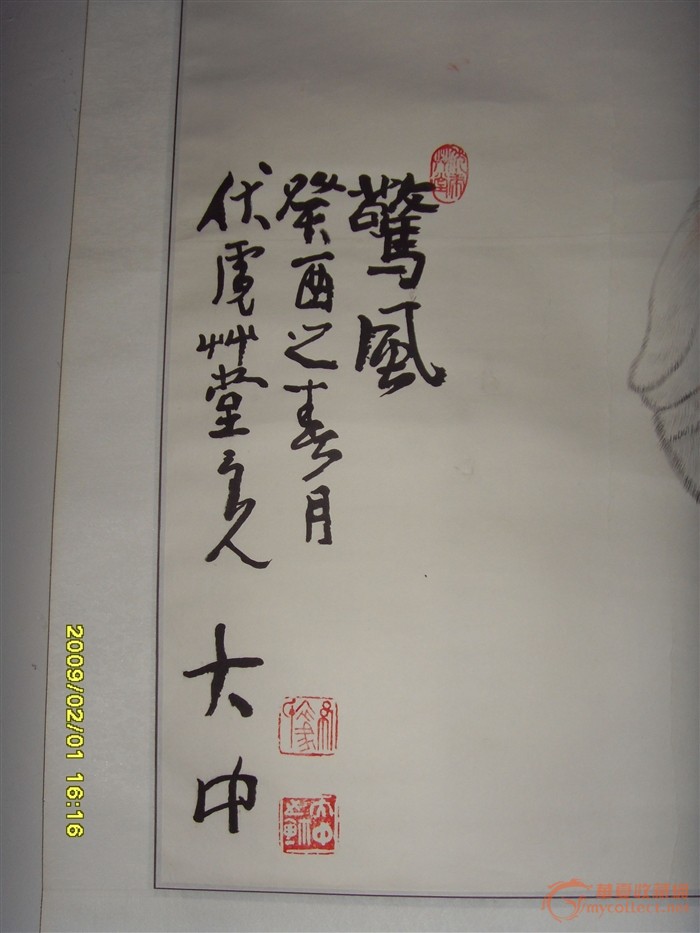 驚風
癸酉之春月
伏虎艸堂主人
大中
2009/02/01 16:16
華夏收藏網
mycollect.net